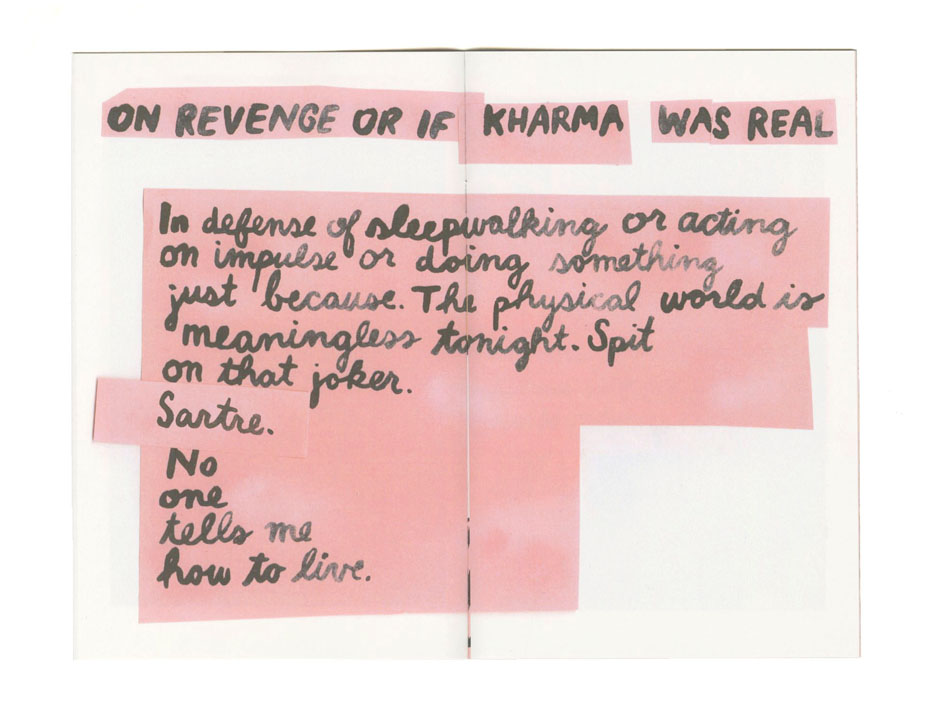 ON REVENGE OR IF KHARMA WAS REAL
In defense of sleepwalking or acting
on impulse or doing something
just because. The physical world is
meaningless tonight. Spit
on that joker.
Sartre.
No
one
tells me
how to live.